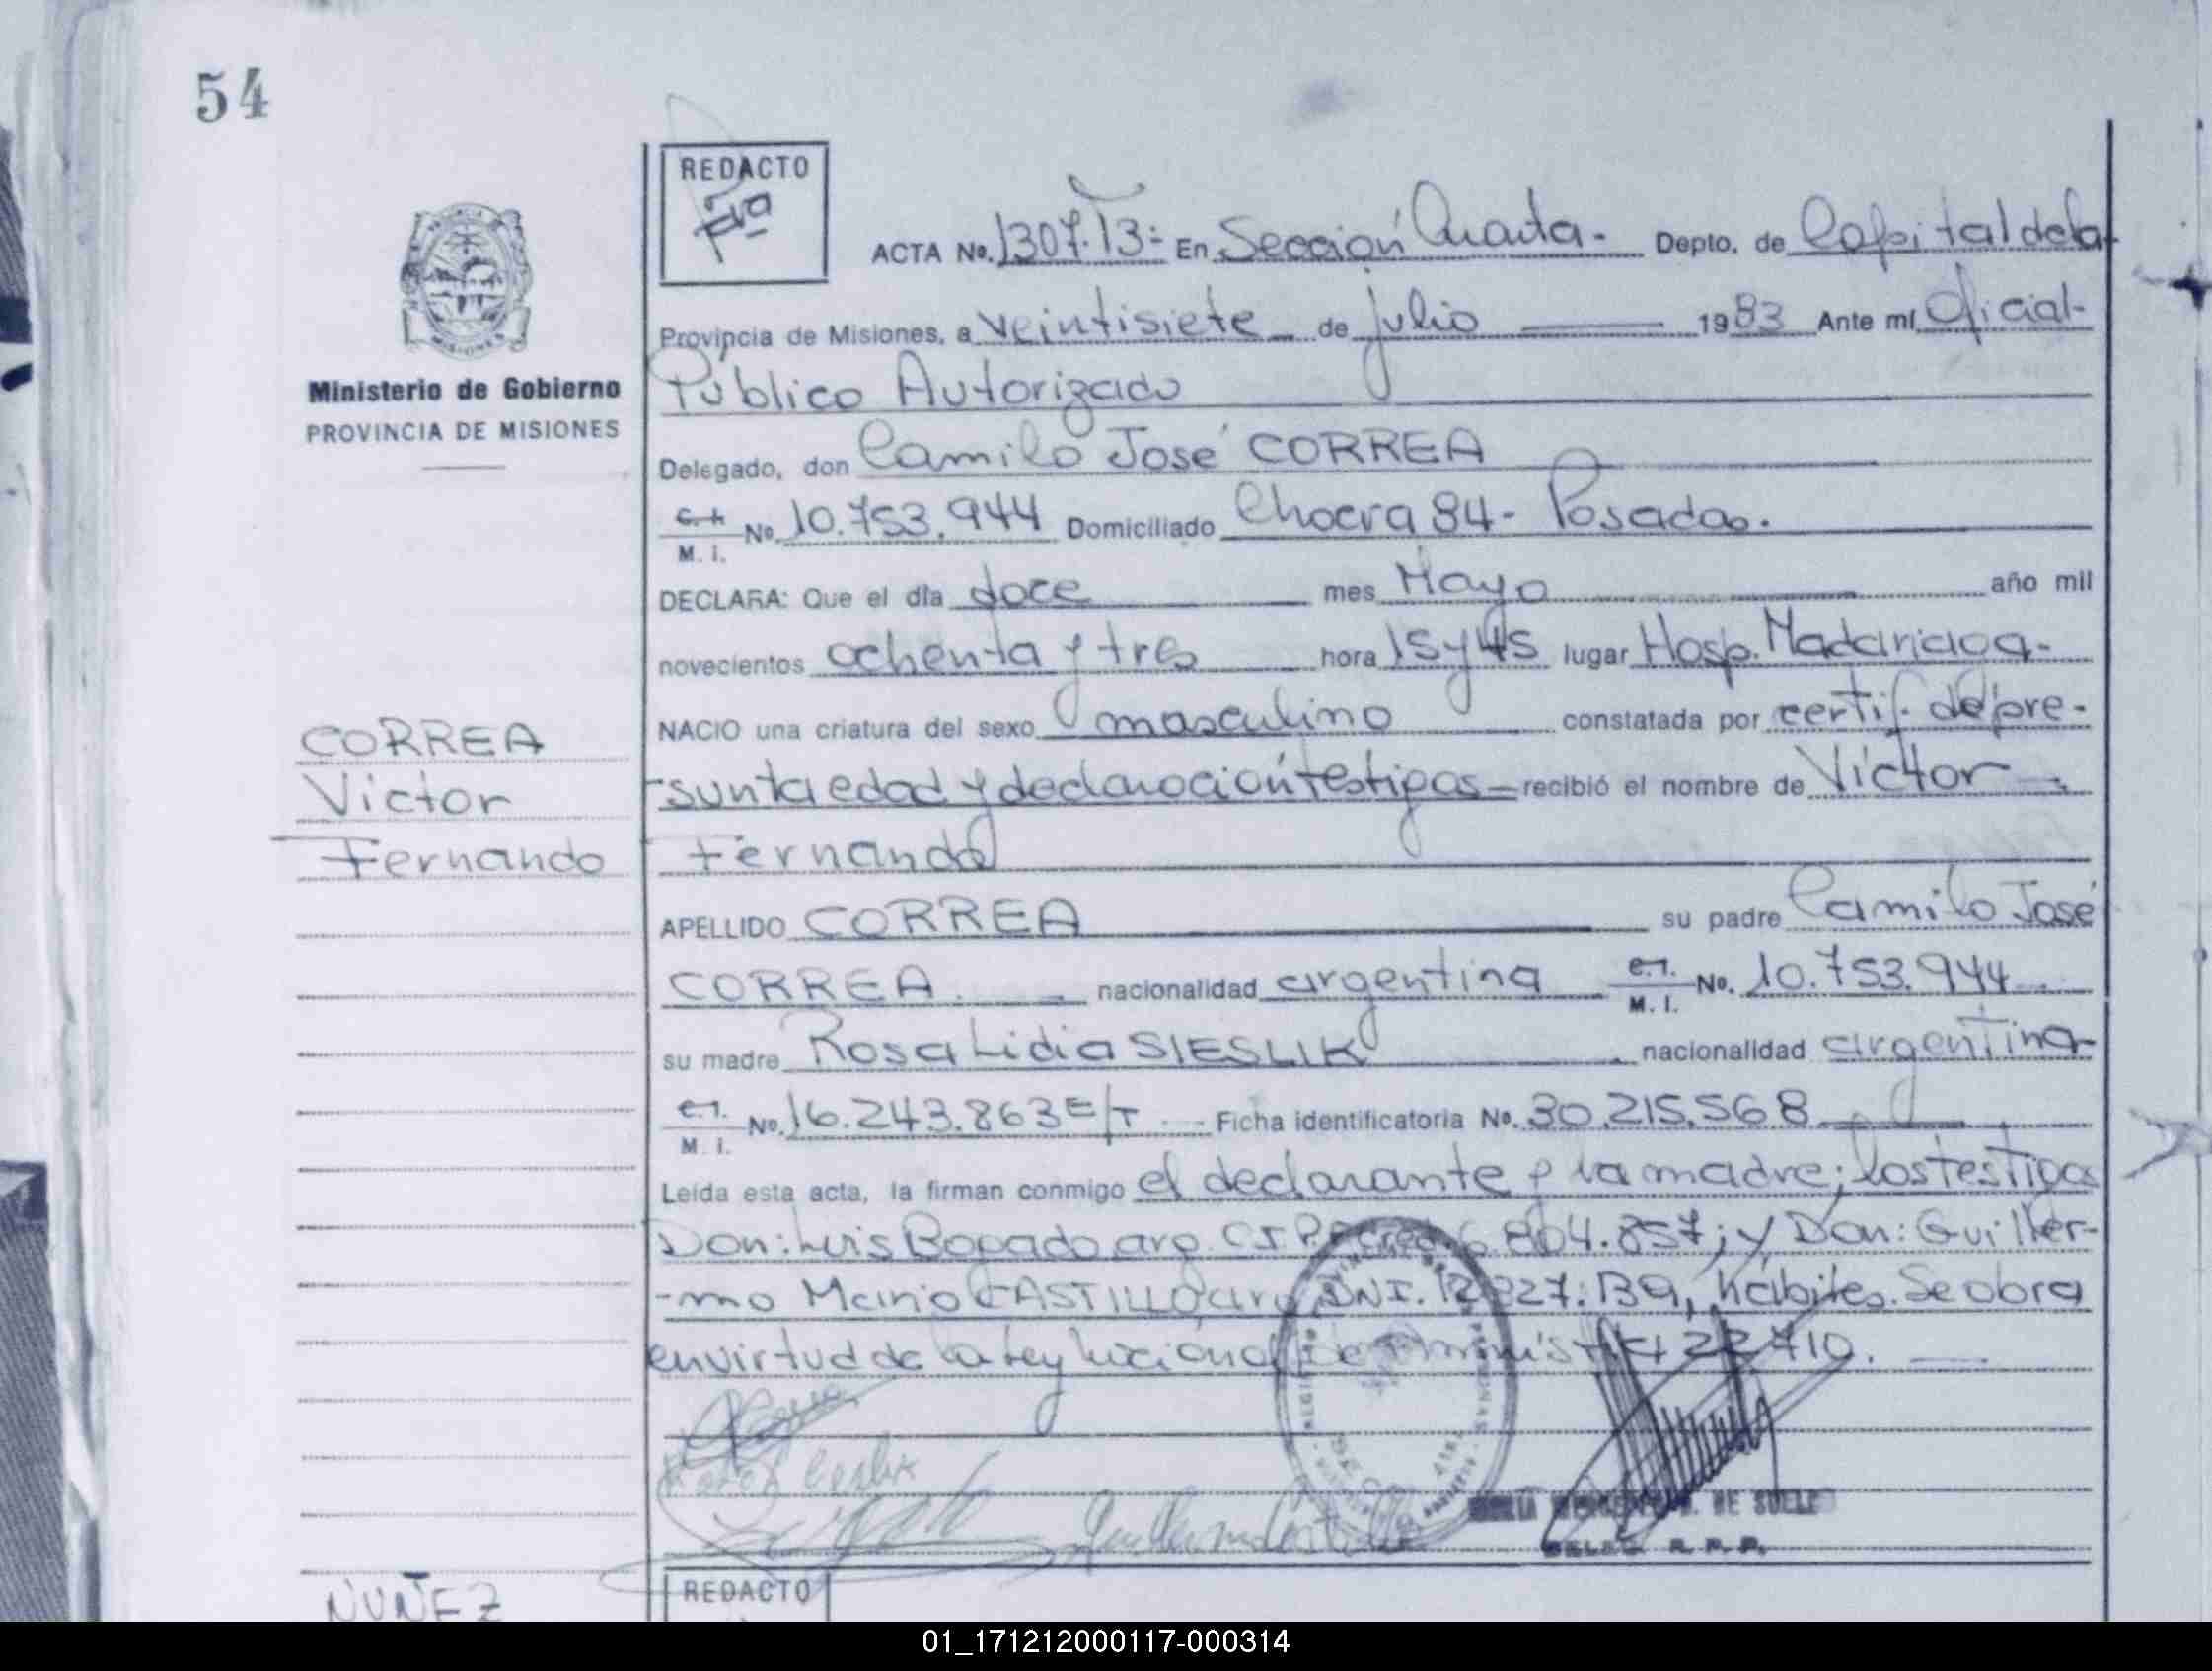 54
REDACTO
ACTA No. 1307.T3:- En Sección Cuarta- Depto. de Capital de la
Provincia de Misiones, a veintisiete de julio 1983 Ante mí Oficial-
Ministerio de Gobierno
Público Autorizado
PROVINCIA DE MISIONES
Delegado, don Camilo José CORREA
No. 10.753.944 Domiciliado Chacra 84- Posadas.
M. I.
DECLARA: Que el día doce mes Mayo año mil
novecientos ochenta y tres hora 15y45 lugar Hosp. Madariaga-
NACIO una criatura del sexo masculino constatada por certif. de pre-
CORREA
-sunta edad y declaración testigos- recibió el nombre de Víctor
Victor
Fernando
Fernando
APELLIDO CORREA su padre Camilo José
CORREA. nacionalidad argentina No. 10.753.944
M. I.
su madre Rosa Lidia SIESLIK nacionalidad argentina
No. 16.243.863 E/T Ficha identificatoria No. 30.215.568
M. I.
Leída esta acta, la firman conmigo el declarante y la madre; los testigos
Don: Luis Bogado arg. C I 804.857; y Don: Guiller-
-mo Mario CASTILLO arg DNI. hábiles. Se obra
en virtud de la ley nacional 22410.
DE
R. P. P.
REDACTO
NUÑEZ
01_171212000117-000314